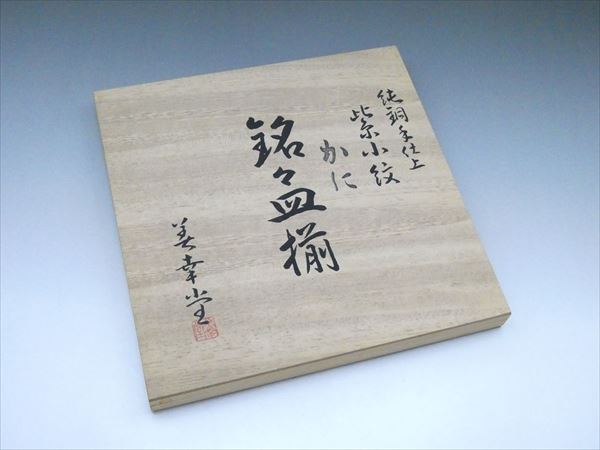 純銅手仕上
紫小紋
かに
銘々皿揃
美幸堂